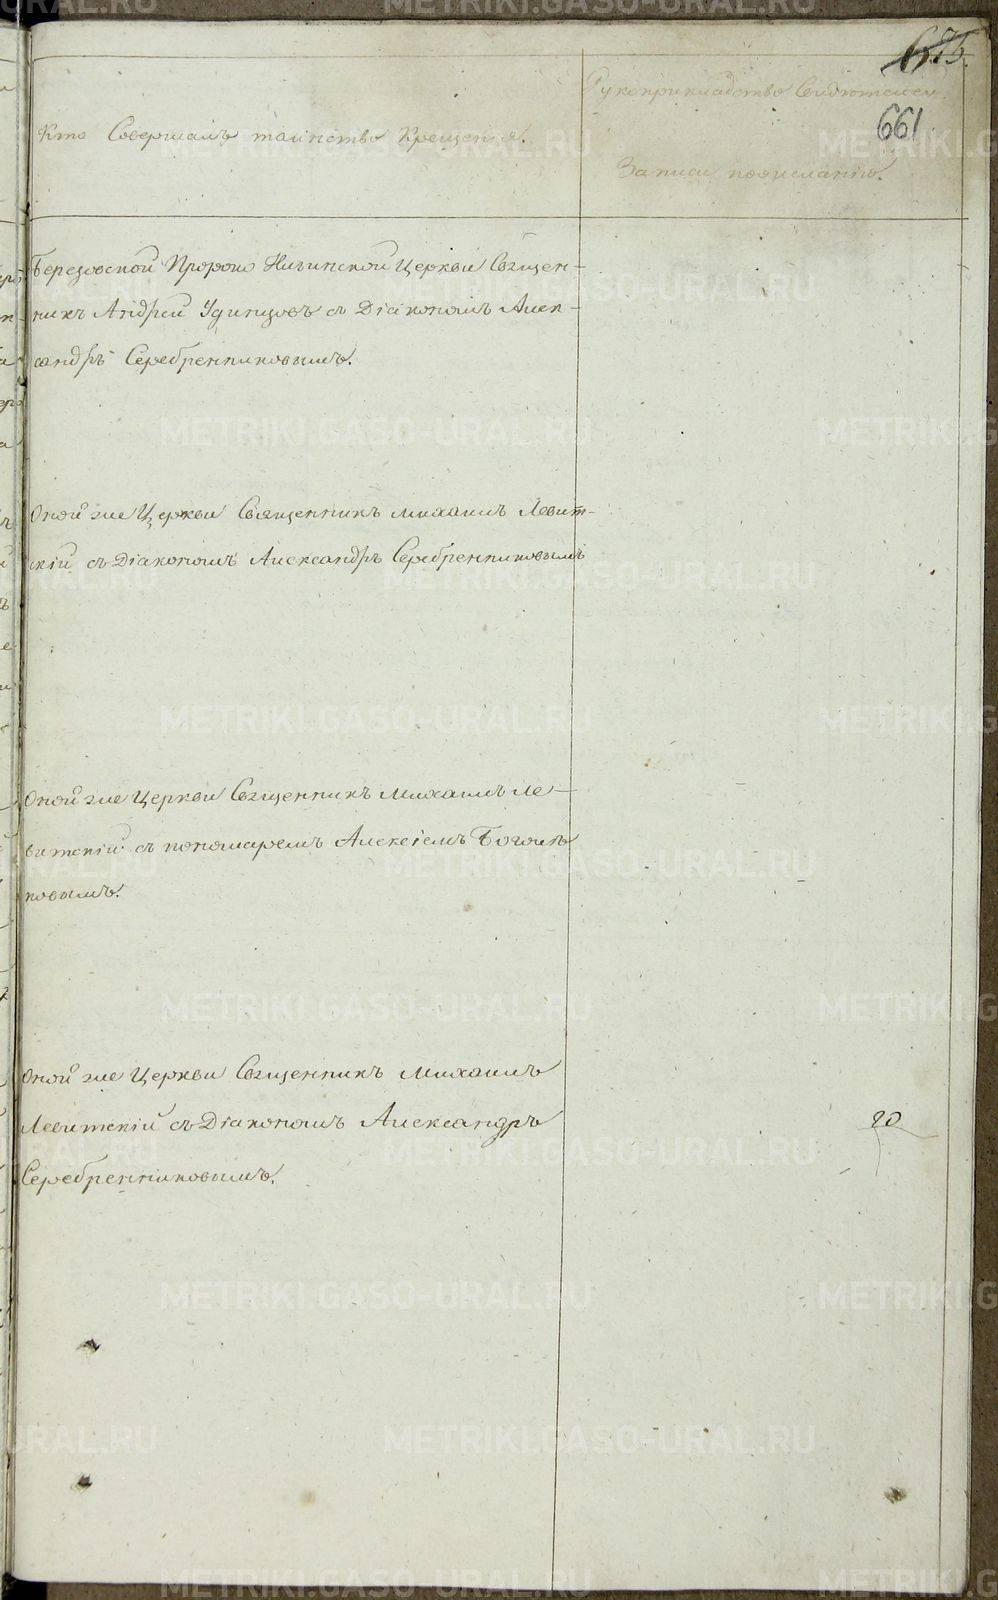 675.
661
Кто Совершалъ таинство Крещенія.
Рукоприкладство Свидѣтелей
Записи по желанію.
Березовской Пророко Ильинской Церкви Священ-
никъ Андрей Удинцовъ съ Діакономъ Алек-
сандръ Серебренниковымъ.
Оной же Церкви Священникъ Михаилъ Левит-
скій съ Діакономъ Александръ Серебренниковымъ
Оной же Церкви Священникъ Михаилъ Ле-
витскій съ пономаремъ Алексіемъ
ковымъ.
Оной же Церкви Священникъ Михаилъ
Левитскій съ Діакономъ Александръ
20
Серебренниковымъ.
METRIKI.GASO-URAL.RU